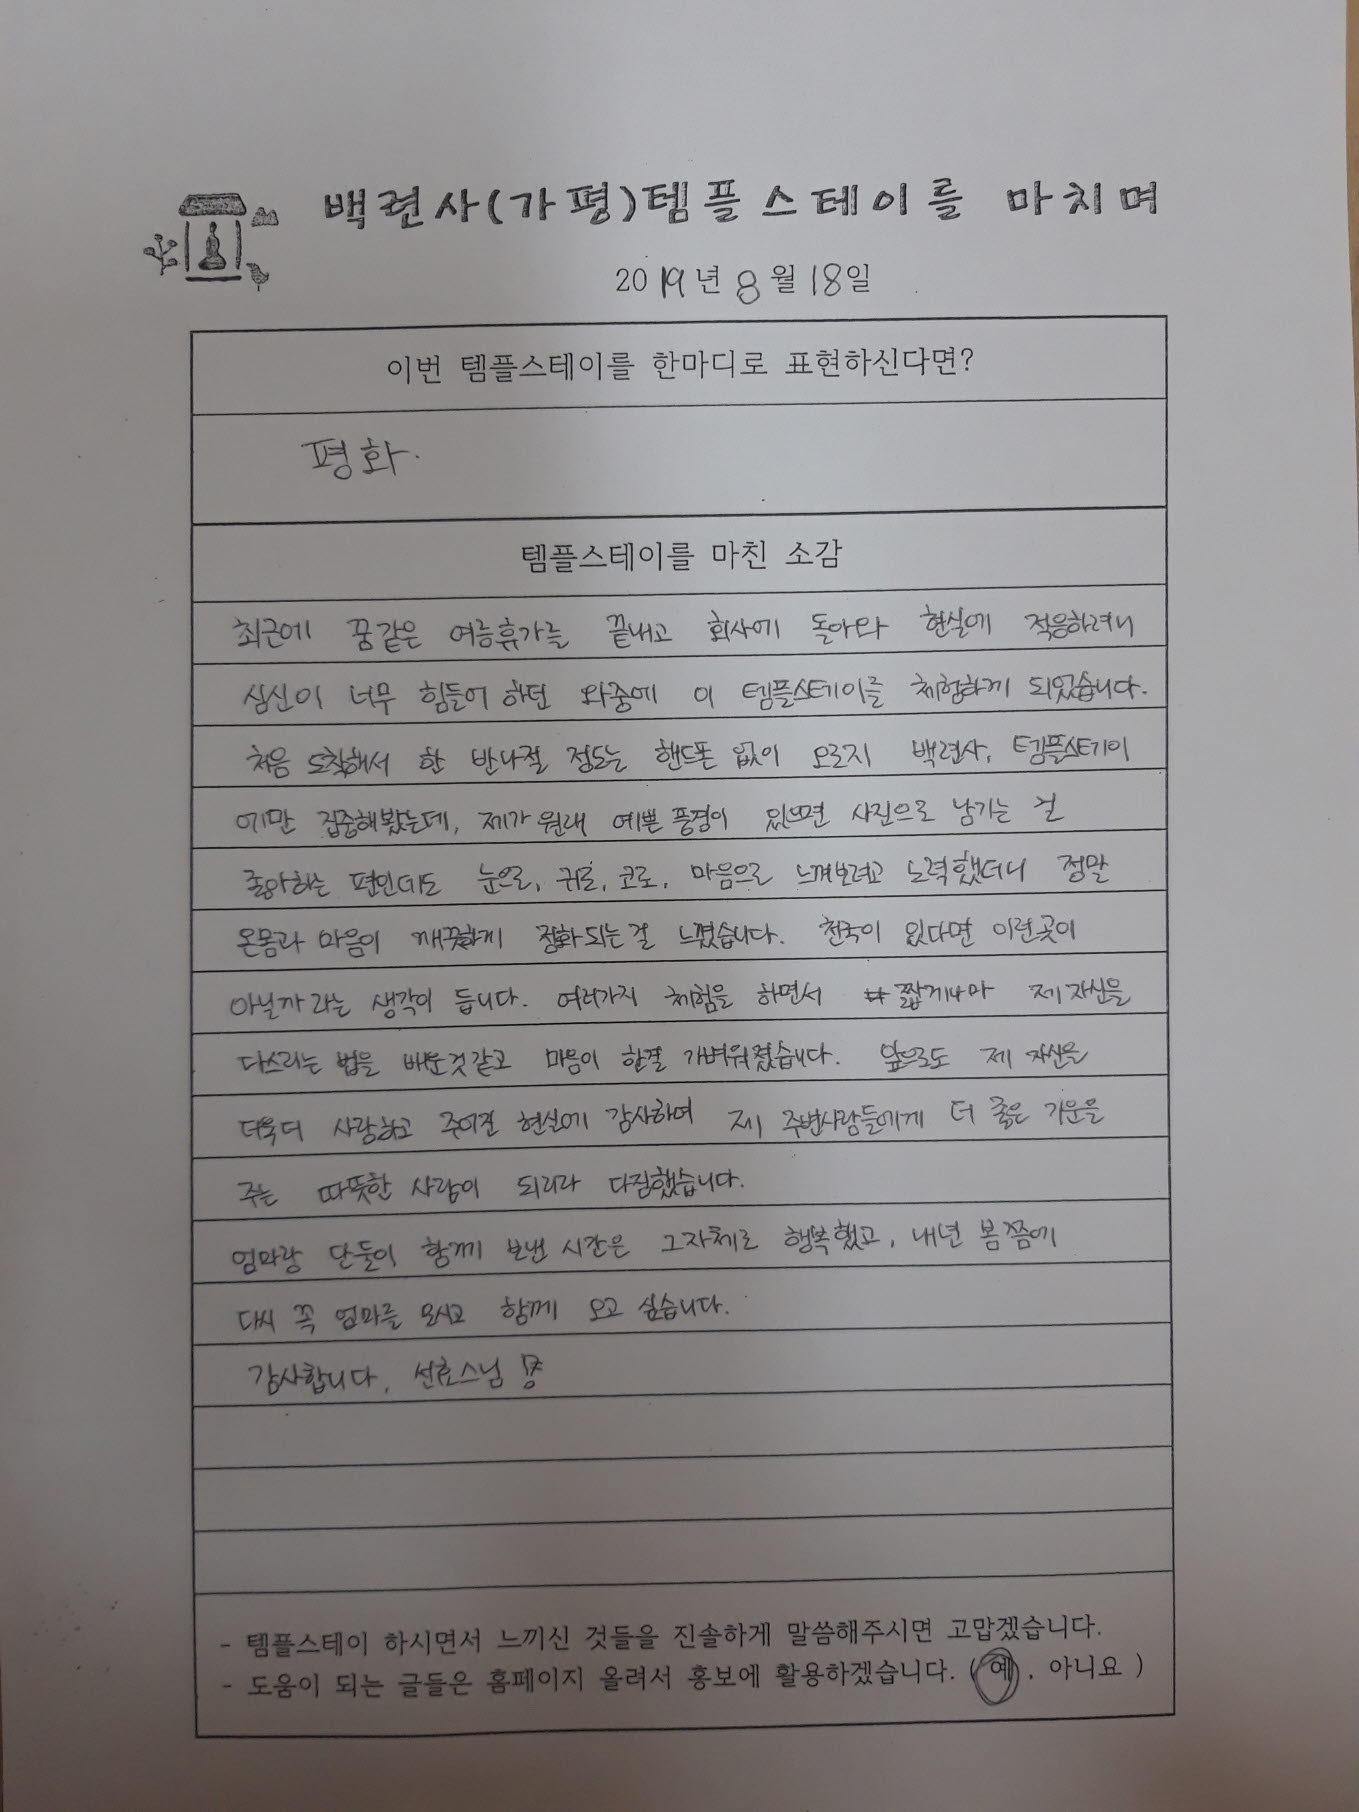 백련사(가평)템플스테이를 마치며
2019년 8월 18일
이번 템플스테이를 한마디로 표현하신다면?
평화.
템플스테이를 마친 소감
최근에 꿈같은 여름휴가를 끝내고 회사에 돌아와 현실에 적응하려니
심신이 너무 힘들어 하던 와중에 이 템플스테이를 체험하게 되었습니다.
처음 도착해서 한 반나절 정도는 핸드폰 없이 오로지 백련사, 템플스테이
에만 집중해봤는데, 제가 원래 예쁜 풍경이 있으면 사진으로 남기는 걸
좋아하는 편인데도 눈으로, 귀로, 코로, 마음으로 느껴보려고 노력했더니 정말
온몸과 마음이 깨끗하게 정화되는걸 느꼈습니다. 천국이 있다면 이런곳이
아닐까 라는 생각이 듭니다. 여러가지 체험을 하면서 짧게나마 제 자신을
다스리는 법을 배운것같고 마음이 한결 가벼워졌습니다. 앞으로도 제 자신을
더욱더 사랑하고 주어진 현실에 감사하며 제 주변사람들에게 더 좋은 기운을
주는 따뜻한 사람이 되리라 다짐했습니다.
엄마랑 단둘이 함께 보낸 시간은 그자체로 행복했고, 내년 봄쯤에
다시 꼭 엄마를 모시고 함께 오고 싶습니다.
감사합니다, 선효스님
- 템플스테이 하시면서 느끼신 것들을 진솔하게 말씀해주시면 고맙겠습니다.
- 도움이 되는 글들은 홈페이지 올려서 홍보에 활용하겠습니다. ( 예 , 아니요 )